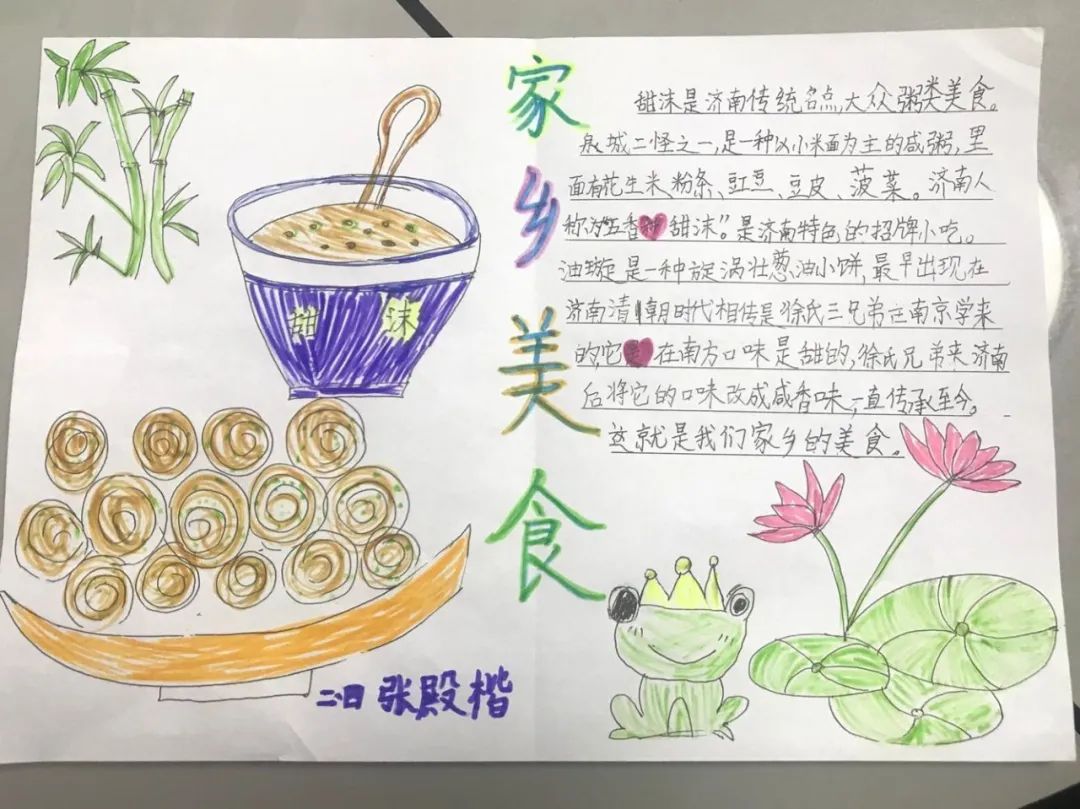 家乡美食
甜沫是济南传统名点,大众粥类美食。
泉城二怪之一,是一种以小米面为主的咸粥,里
面有花生米粉条、豇豆、豆皮、菠菜。济南人
称为“五香 甜沫”。是济南特色的招牌小吃。
油璇是一种旋涡壮葱油小饼,最早出现在
济南清朝时代相传是徐氏三兄弟在南京学来
的,它 在南方口味是甜的,徐氏兄弟来济南
后将它的口味改成咸香味,一直传承至今。
这就是我们家乡的美食。
甜沫
二·四 张殿楷